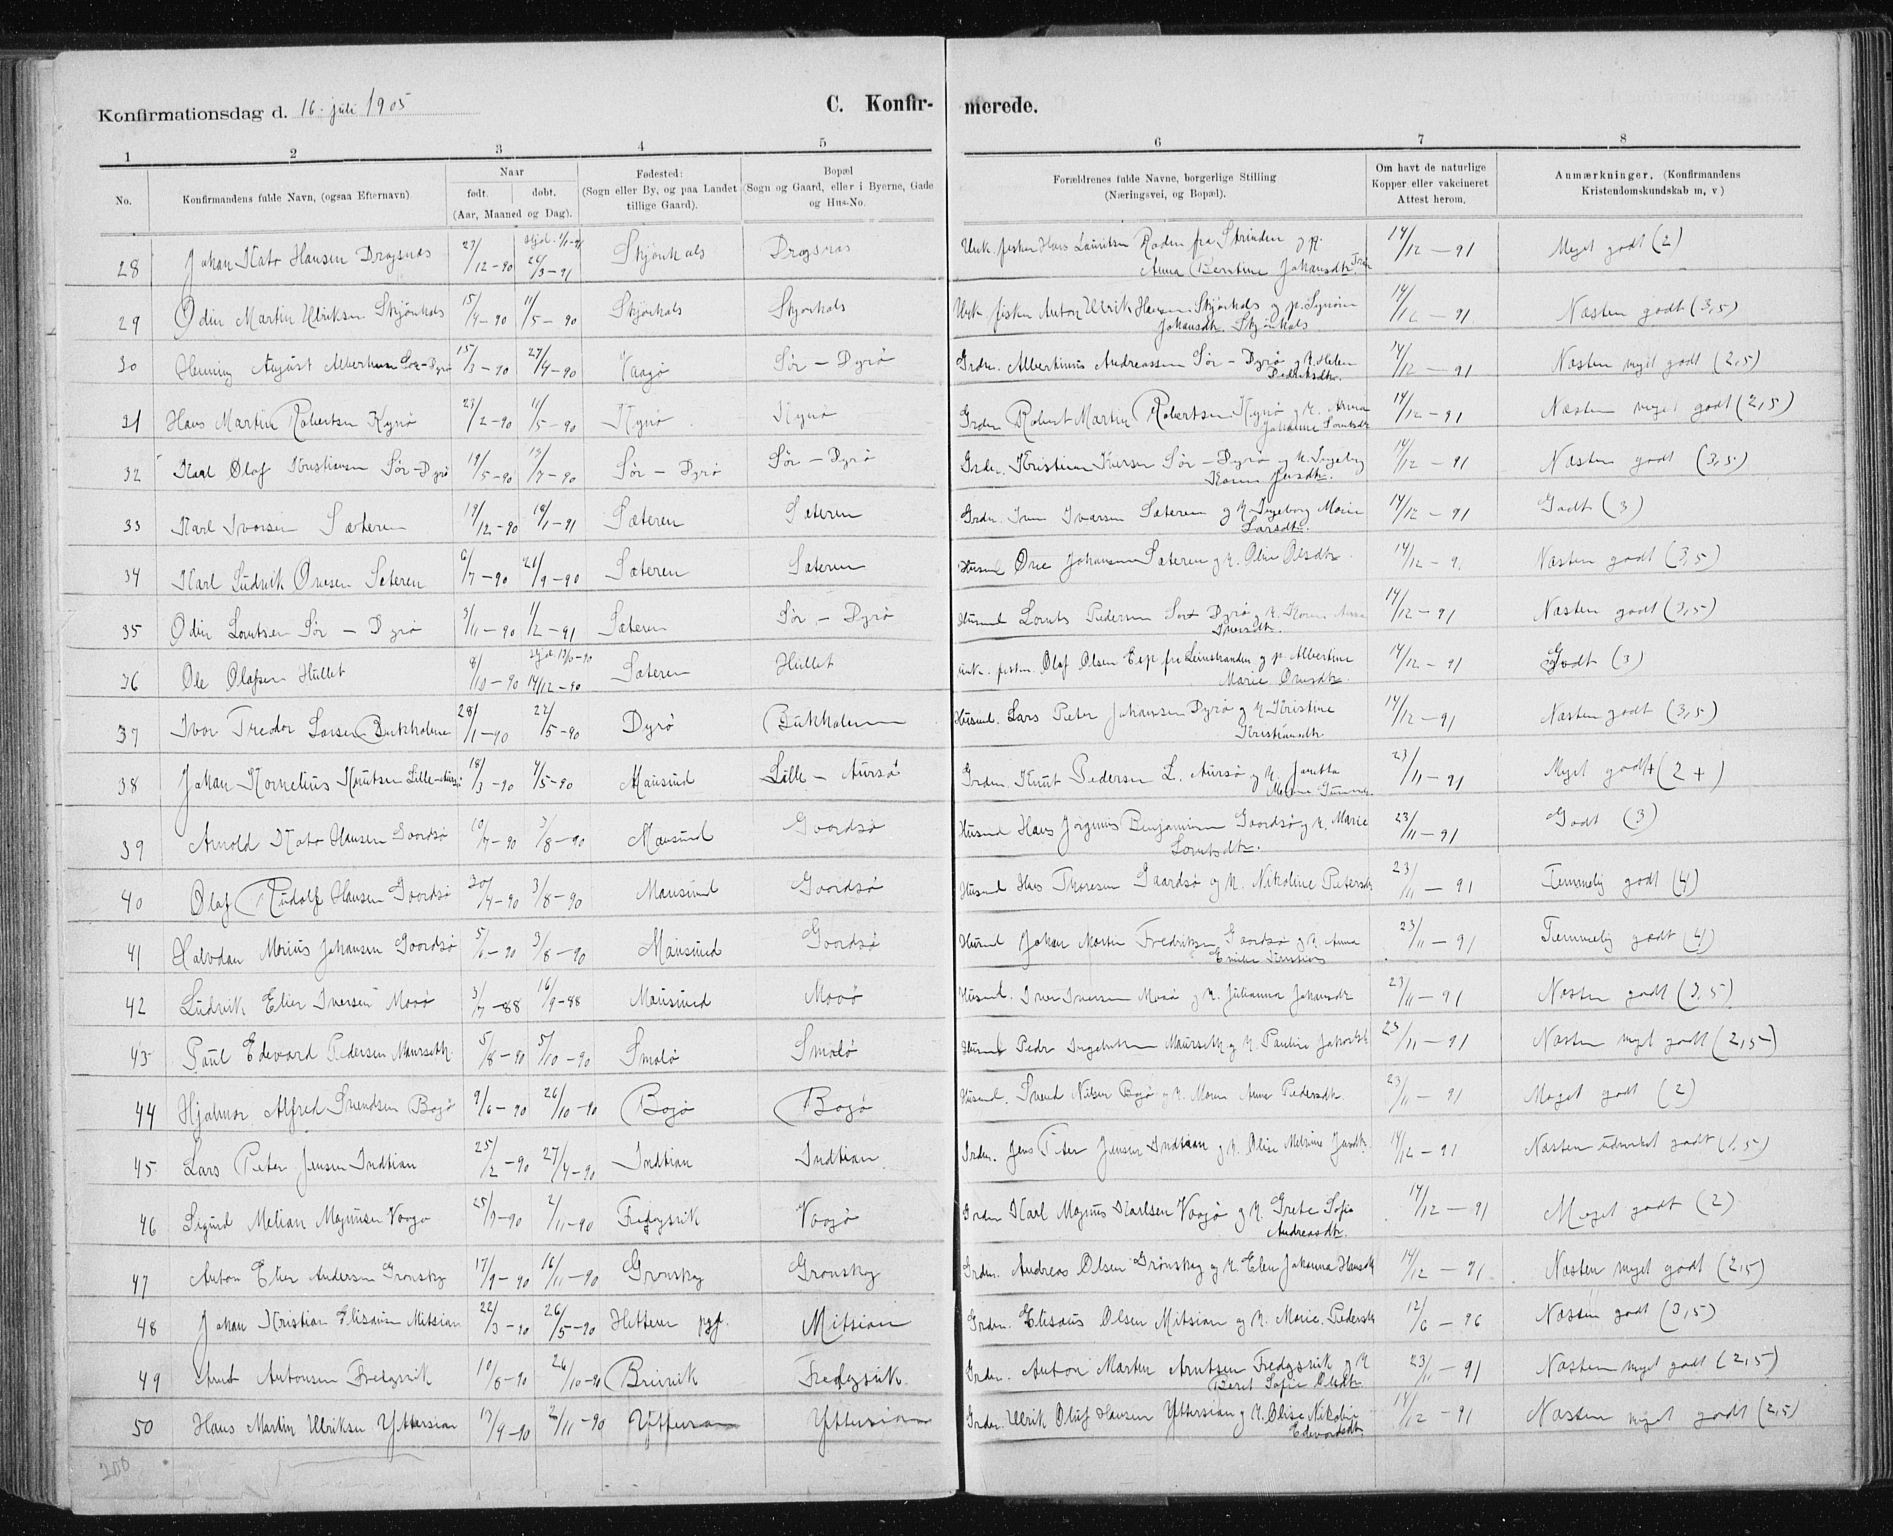 Konfirmationsdag d. 16. juli 1905
C. Konfir- merede.
1 2 3 4 5 6 7 8
No. Konfirmandens fulde Navn, (ogsaa Efternavn) Naar født. døbt. (Aar, Maaned og Dag). Fødested: (Sogn eller By, og paa Landet tillige Gaard). Bopæl (Sogn og Gaard, eller i Byerne, Gade og Hus-No. Forældrenes fulde Navne, borgerlige Stilling (Næringsvei, og Bopæl). Om havt de naturlige Kopper eller vakcineret Attest herom. Anmærkninger. (Konfirmandens Kristendomskundskab m, v)
28 Johan Kato Hansen Dragsnes 27/12-90 26/3-91 Skjønhals Dragsnes Unk. fisker Hans Lauritsen fra Strinden og p. Anna Berntine Johansdtr. 14/12-91 Meget godt (2)
29 Odin Martin Ulriksen Skjønhals 15/4-90 11/5-90 Skjønhals Skjønhals Unk. fisker Anton Ulrik Hansen Skjønhals og p. Johansdtr. Skjønhals 14/12-91 Næsten godt (3,5)
30 Henning August Albertsen Sør-Dyrø 15/3-90 27/4-90 Vaagø Sør-Dyrø Grdm. Albertinus Andreassen Sør-Dyrø og K. Helen 14/12-91 Næsten meget godt (2,5)
31 Hans Martin Robertsen Kyrø 23/2-90 11/5-90 Kyrø Kyrø Grdm Robert Martin Robertsen Kyrø og K. Anna Johanne Lorntsdtr 14/12-91 Næsten meget godt (2,5)
32 Karl Olaf Kristiansen Sør-Dyrø 19/5-90 13/7-90 Sør-Dyrø Sør-Dyrø Grdm. Kristian Sør-Dyrø og K. Ingeborg Karen 14/12-91 Næsten godt (3,5)
33 Karl Ivarsen Sæteren 19/12-90 18/1-91 Sæteren Sæteren Grdm. Ivarsen Sæteren og K. Ingeborg Marie Larsdtr. 14/12-91 Godt (3)
34 Karl Ludvik Onesen Sæteren 6/7-90 21/9-90 Sæteren Sæteren Husmd One Johansen Sæteren og K. Olsdtr. 14/12-9 Næsten godt (3,5)
35 Odin Lorntsen Sør-Dyrø 3/11-90 1/2-91 Sæteren Sør-Dyrø Husmd Lornts Pedersen Sør Dyrø og K. Karen Anna Iversdtr. 14/12-91 Næsten godt (3,5)
36 Ole Olafsen Hullet 8/10-90 14/12-90 Sæteren Hullet Unk. Olaf Olsen Esp fra Leinstranden og p. Albertine Marie Onesdtr. 14/12-91 Godt (3)
37 Ivar Treodor Larsen Bukholmen 28/1-90 22/5-90 Dyrø Bukholmen Husmd. Lars Peter Johansen Dyrø og K. Kristine Kristiansdtr. 14/12-91 Næsten godt (3,5)
38 Johan Kornelius Knutsen Lille-Aursø 18/3-90 4/5-90 Mausund Lille-Aursø Grdm. Knut Pedersen L. Aursø og K. 23/11-91 Meget godt+ (2+)
39 Arnold Kato Hansen Gaardsø 10/7-90 3/8-90 Mausund Gaardsø Husmd Hans Jørginus Benjaminsen Gaardsø og K. Marie Lorntsdtr. 23/11-91 Godt (3)
40 Olaf Rudolf Hansen Gaardsø 30/4-90 3/8-90 Mausund Gaardsø Husmd Hans Thoresen Gaardsø og K. Nikoline Petersdtr 23/11-91 Temmelig godt (4)
41 Halvdan Marius Johansen Gaardsø 5/6-90 3/8-90 Mausund Gaardsø Husmd Johan Martin Fredriksen Gaardsø og K. Anna Emilie 23/11-91 Temmelig godt (4)
42 Ludvik Elier Iversen Moaø 3/7-88 16/9-88 Mausund Moaø Husmd. Iver Iversen Moaø og K. Julianna Johansdtr 23/11-91 Næsten godt (3,5)
43 Paul Edevard Pedersen Maurseth 5/8-90 5/10-90 Smolø Smolø Husmd Peder Ingebrktsen Maurseth og K. Pauline Jakobsdtr 23/11-91 Næsten meget godt (2,5)
44 Hjalmar Alfred Svendsen Bogø 9/6-90 26/10-90 Bogø Bogø Husmd. Svend Nilsen Bogø og K. Maren Anna Pedersdtr. 23/11-91 Meget godt (2)
45 Lars Peter Jensen Indtian 25/2-90 27/4-90 Indtian Indtian Grdm. Jens Peter Jensen Indtian og K. Olise Jensdtr. 14/12-91 Næsten udmrket godt (1,5)
46 Sigurd Melian Magnusen Vaagø 25/9-90 2/11-90 Fredgsvik Vaagø Grdm Karl Magnus Karlsen Vaagø og K. Grete Sofie Andreasdtr. 14/12-91 Meget godt (2)
47 Anton Elier Andersen Grønskag 17/9-90 16/11-90 Grønskag Grønskag Grdm. Andreas Olsen Grønskag og K. Elen Johanna Hansdtr 14/12-91 Næsten meget godt (2,5)
48 Johan Kristian Elisæusen Mitsian 22/3-90 26/5-90 Hitteren pgf. Mitsian Grdm. Elisæus Olsen Mitsian og K. Marie Pedersdtr 12/6-96 Næsten godt (3,5)
49 Arnt Antonsen Fredgsvik 10/8-90 26/10-90 Bruvik Fredgsvik Grdm. Anton Martin Arntsen Fredgsvik og K Beret Sofie Olsdtr. 23/11-91 Næsten meget godt (2,5)
50 Hans Martin Ulriksen Yttersian 13/9-90 2/11-90 Yttersian Yttersian Grdm. Ulrik Oluf Hansen Yttersian og K. Olise Nikoline Edvardsdtr. 14/12-91 Næsten meget godt (2,5)
200